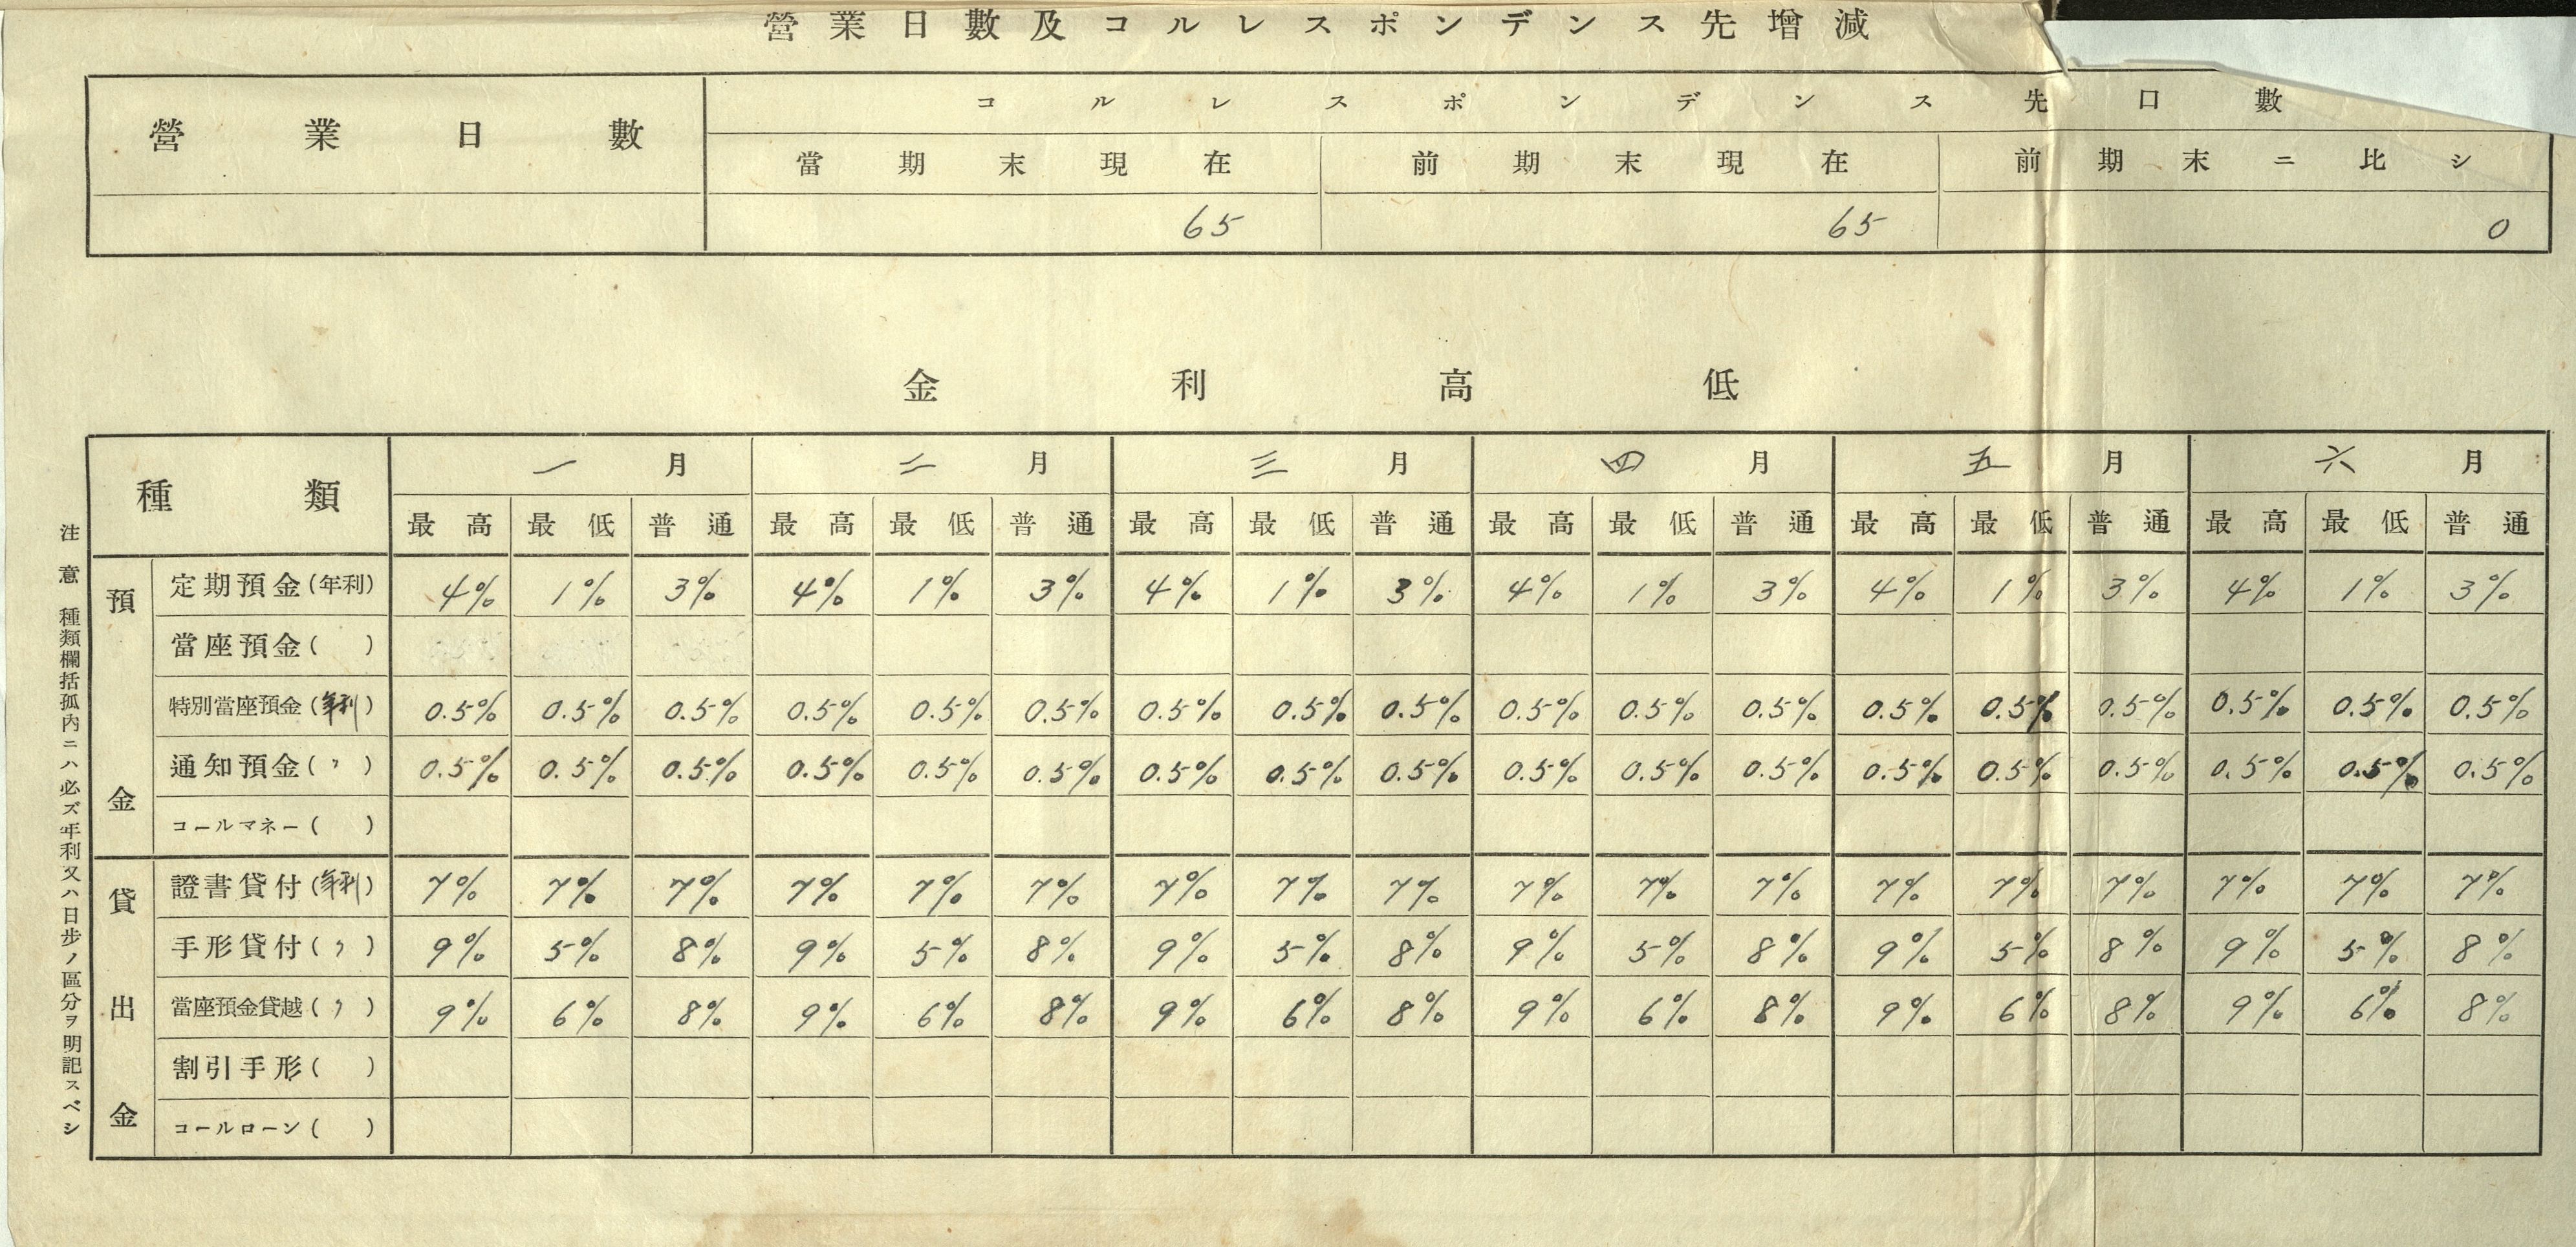 營業日數及コルレスポンデンス先增減
營業日數 コルレスポンデンス先口數
當期末現在 前期末現在 前期末ニ比シ
65 65 0
金利高低
種類 一月 二月 三月 四月 五月 六月
最高 最低 普通 最高 最低 普通 最高 最低 普通 最高 最低 普通 最高 最低 普通 最高 最低 普通
預金
定期預金(年利) 4% 1% 3% 4% 1% 3% 4% 1% 3% 4% 1% 3% 4% 1% 3% 4% 1% 3%
當座預金( )
特別當座預金(年利) 0.5% 0.5% 0.5% 0.5% 0.5% 0.5% 0.5% 0.5% 0.5% 0.5% 0.5% 0.5% 0.5% 0.5% 0.5% 0.5% 0.5% 0.5%
通知預金(〃) 0.5% 0.5% 0.5% 0.5% 0.5% 0.5% 0.5% 0.5% 0.5% 0.5% 0.5% 0.5% 0.5% 0.5% 0.5% 0.5% 0.5% 0.5%
コールマネー( )
貸出金
證書貸付(年利) 7% 7% 7% 7% 7% 7% 7% 7% 7% 7% 7% 7% 7% 7% 7% 7% 7% 7%
手形貸付(〃) 9% 5% 8% 9% 5% 8% 9% 5% 8% 9% 5% 8% 9% 5% 8% 9% 5% 8%
當座預金貸越(〃) 9% 6% 8% 9% 6% 8% 9% 6% 8% 9% 6% 8% 9% 6% 8% 9% 6% 8%
割引手形( )
コールローン( )
注意 種類欄括孤内ニハ必ズ年利又ハ日步ノ區分ヲ明記スベシ